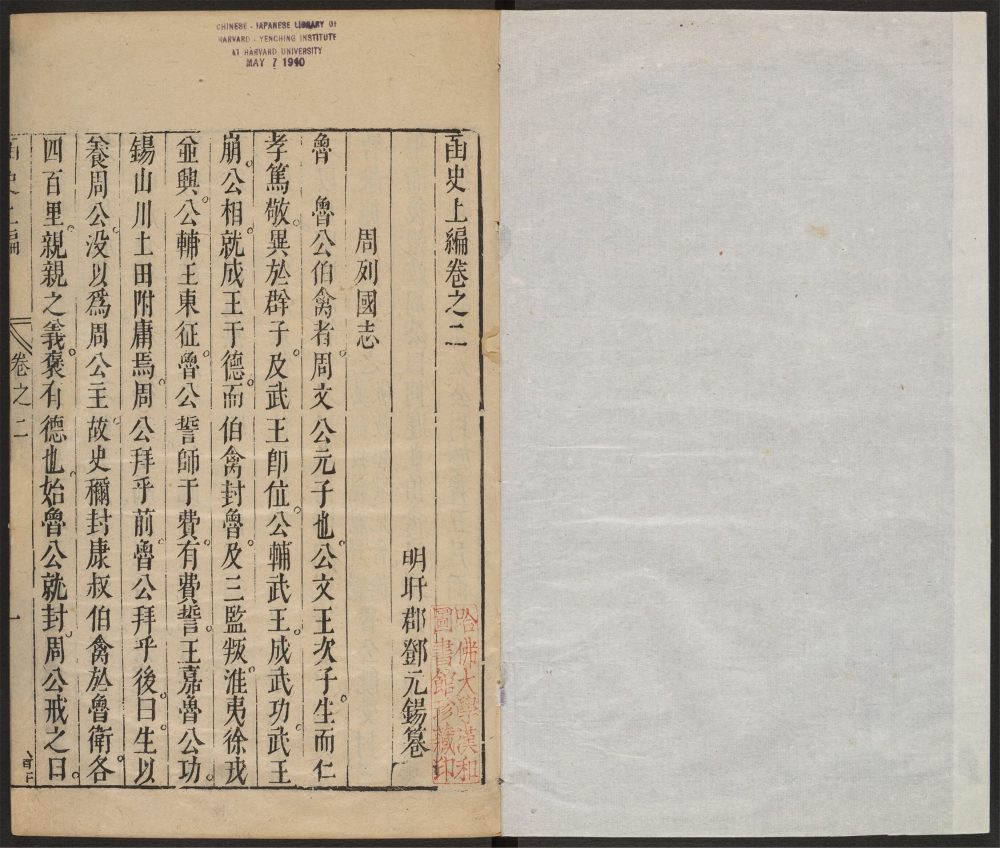 CHINESE - JAPANESE LIBRARY OF
HARVARD - YENCHING INSTITUTE
AT HARVARD UNIVERSITY
MAY 7 1940
函史上編卷之二
明旴郡鄧元錫纂
哈佛大學漢和
圖書館珍藏印
周列國志
魯 魯公伯禽者周文公元子也公文王次子生而仁
孝篤敬異於群子及武王卽位公輔武王成武功武王
崩公相就成王于德而伯禽封魯及三監叛淮夷徐戎
並興公輔王東征魯公誓師于費有費誓王嘉魯公功
錫山川土田附庸焉周公拜乎前魯公拜乎後曰生以
養周公沒以爲周公主故史稱封康叔伯禽於魯衛各
四百里親親之義襃有德也始魯公就封周公戒之曰
函史上編
卷之二
一